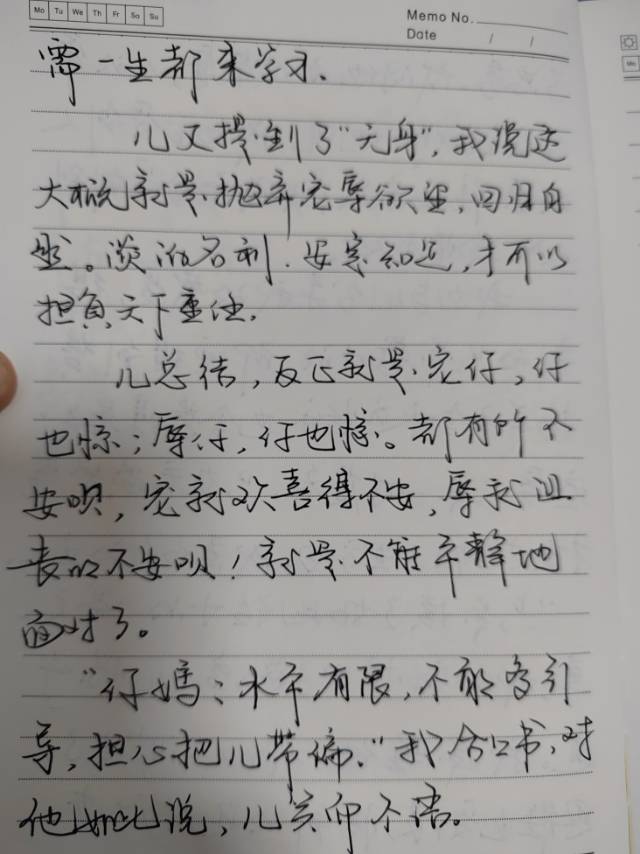 Mo Tu We Th Fr Sa Su
Memo No.
Date / /
需一生都来学习.
儿又提到了"无身",我说这
大概就是抛弃宠辱欲望,回归自
然。淡泊名利.安定知足,才可以
担负天下重任.
儿总结,反正就是宠仔,仔
也惊;辱仔,仔也惊。都有所不
安呗,宠就欢喜得不安,辱就沮
丧的不安呗!就是不能平静地
面对了。
"仔妈:水平有限,不能多引
导,担心把儿带偏."我合上书,对
他如此说,儿笑而不语。